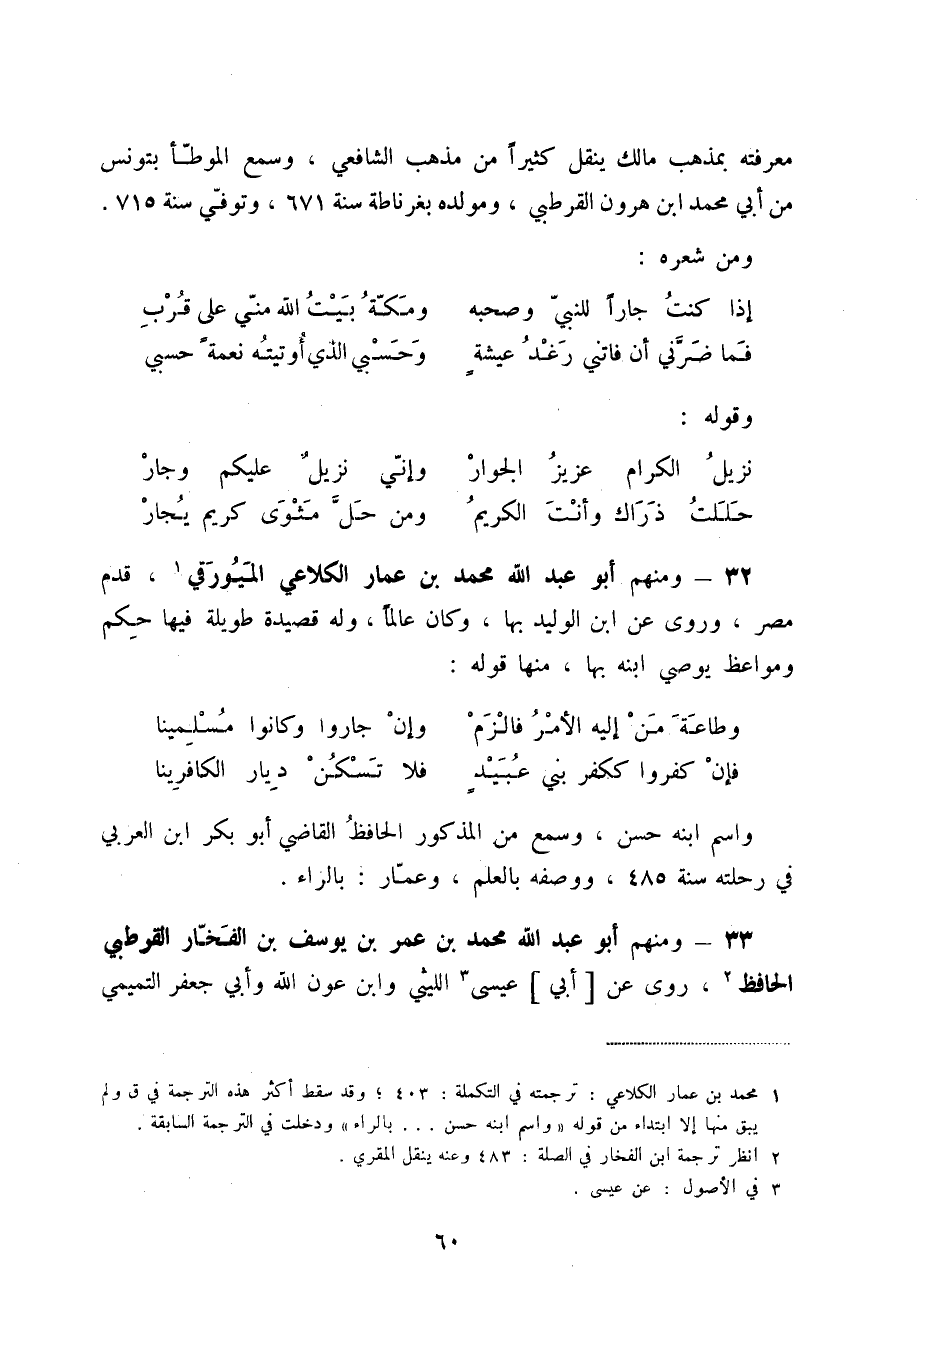 معرفته بمذهب مالك ينقل كثيراً من مذهب الشافعي ، وسمع الموطّأ بتونس
من أبي محمد ابن هرون القرطبي ، ومولده بغرناطة سنة ٦٧١ ، وتوفّي سنة ٧١٥ .
ومن شعره :
إذا كنتُ جاراً للنبيّ وصحبه ومَكّةُ بَيْتُ الله منّي على قُرْبِ
فَما ضَرَّني أن فاتني رَغْدُ عيشةٍ وَحَسْبي الذي أُوتيتُه نعمةً حسبي
وقوله :
نزيلُ الكرام عزيزُ الجوارْ وإنّي نزيلٌ عليكم وجارْ
حَلَلتُ ذَرَاك وأنْتَ الكريمُ ومن حَلَّ مَثْوَى كريم يُجارْ
٣٢ – ومنهم أبو عبد الله محمد بن عمار الكلاعي المَيُورَقي ١ ، قدم
مصر ، وروى عن ابن الوليد بها ، وكان عالماً ، وله قصيدة طويلة فيها حِكم
ومواعظ يوصي ابنه بها ، منها قوله :
وطاعَةَ مَنْ إليه الأمْرُ فالْزَمْ وإنْ جاروا وكانوا مُسْلِمينا
فإنْ كفروا ككفر بني عُبَيْدٍ فلا تَسْكُنْ دِيار الكافرِينا
واسم ابنه حسن ، وسمع من المذكور الحافظُ القاضي أبو بكر ابن العربي
في رحلته سنة ٤٨٥ ، ووصفه بالعلم ، وعمّار : بالراء .
٣٣ – ومنهم أبو عبد الله محمد بن عمر بن يوسف بن الفَخّار القرطبي
الحافظ ٢ ، روى عن [ أبي ] عيسى ٣ الليثي وابن عون الله وأبي جعفر التميمي
١ محمد بن عمار الكلاعي : ترجمته في التكملة : ٤٠٣ ؛ وقد سقط أكثر هذه الترجمة في ق ولم
يبق منها إلا ابتداء من قوله « واسم ابنه حسن . . . بالراء » ودخلت في الترجمة السابقة .
٢ انظر ترجمة ابن الفخار في الصلة : ٤٨٣ وعنه ينقل المقري .
٣ في الأصول : عن عيسى .
٦٠